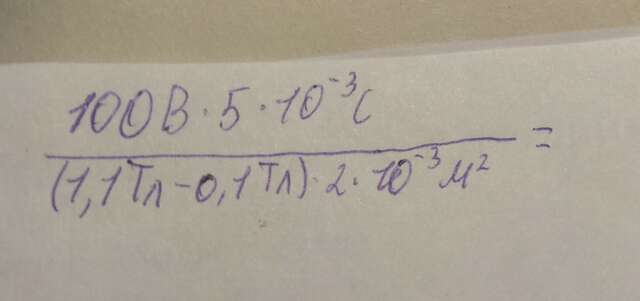 100В · 5 · 10⁻³с
(1,1Тл - 0,1Тл) · 2 · 10⁻³м² =